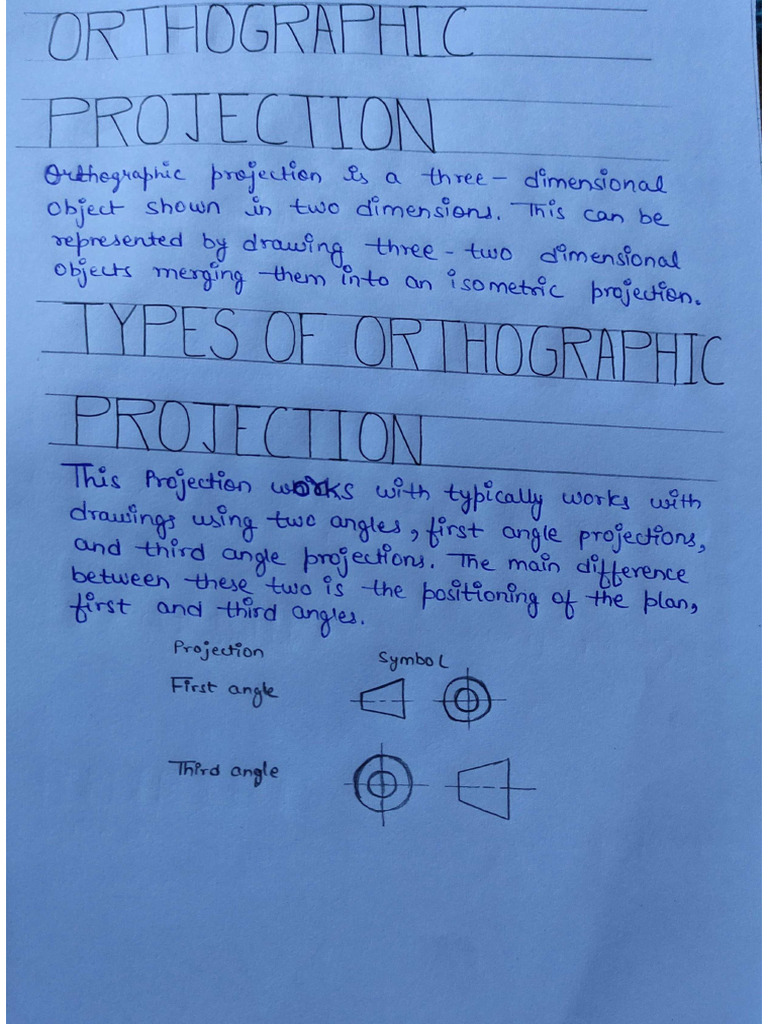 ORTHOGRAPHIC
PROJECTION
Orthographic projection is a three-dimensional
object shown in two dimensions. This can be
represented by drawing three-two dimensional
objects merging them into an isometric projection.
TYPES OF ORTHOGRAPHIC
PROJECTION
This Projection works with typically works with
drawings using two angles, first angle projections,
and third angle projections. The main difference
between these two is the positioning of the plan,
first and third angles.
Projection Symbol
First angle
Third angle